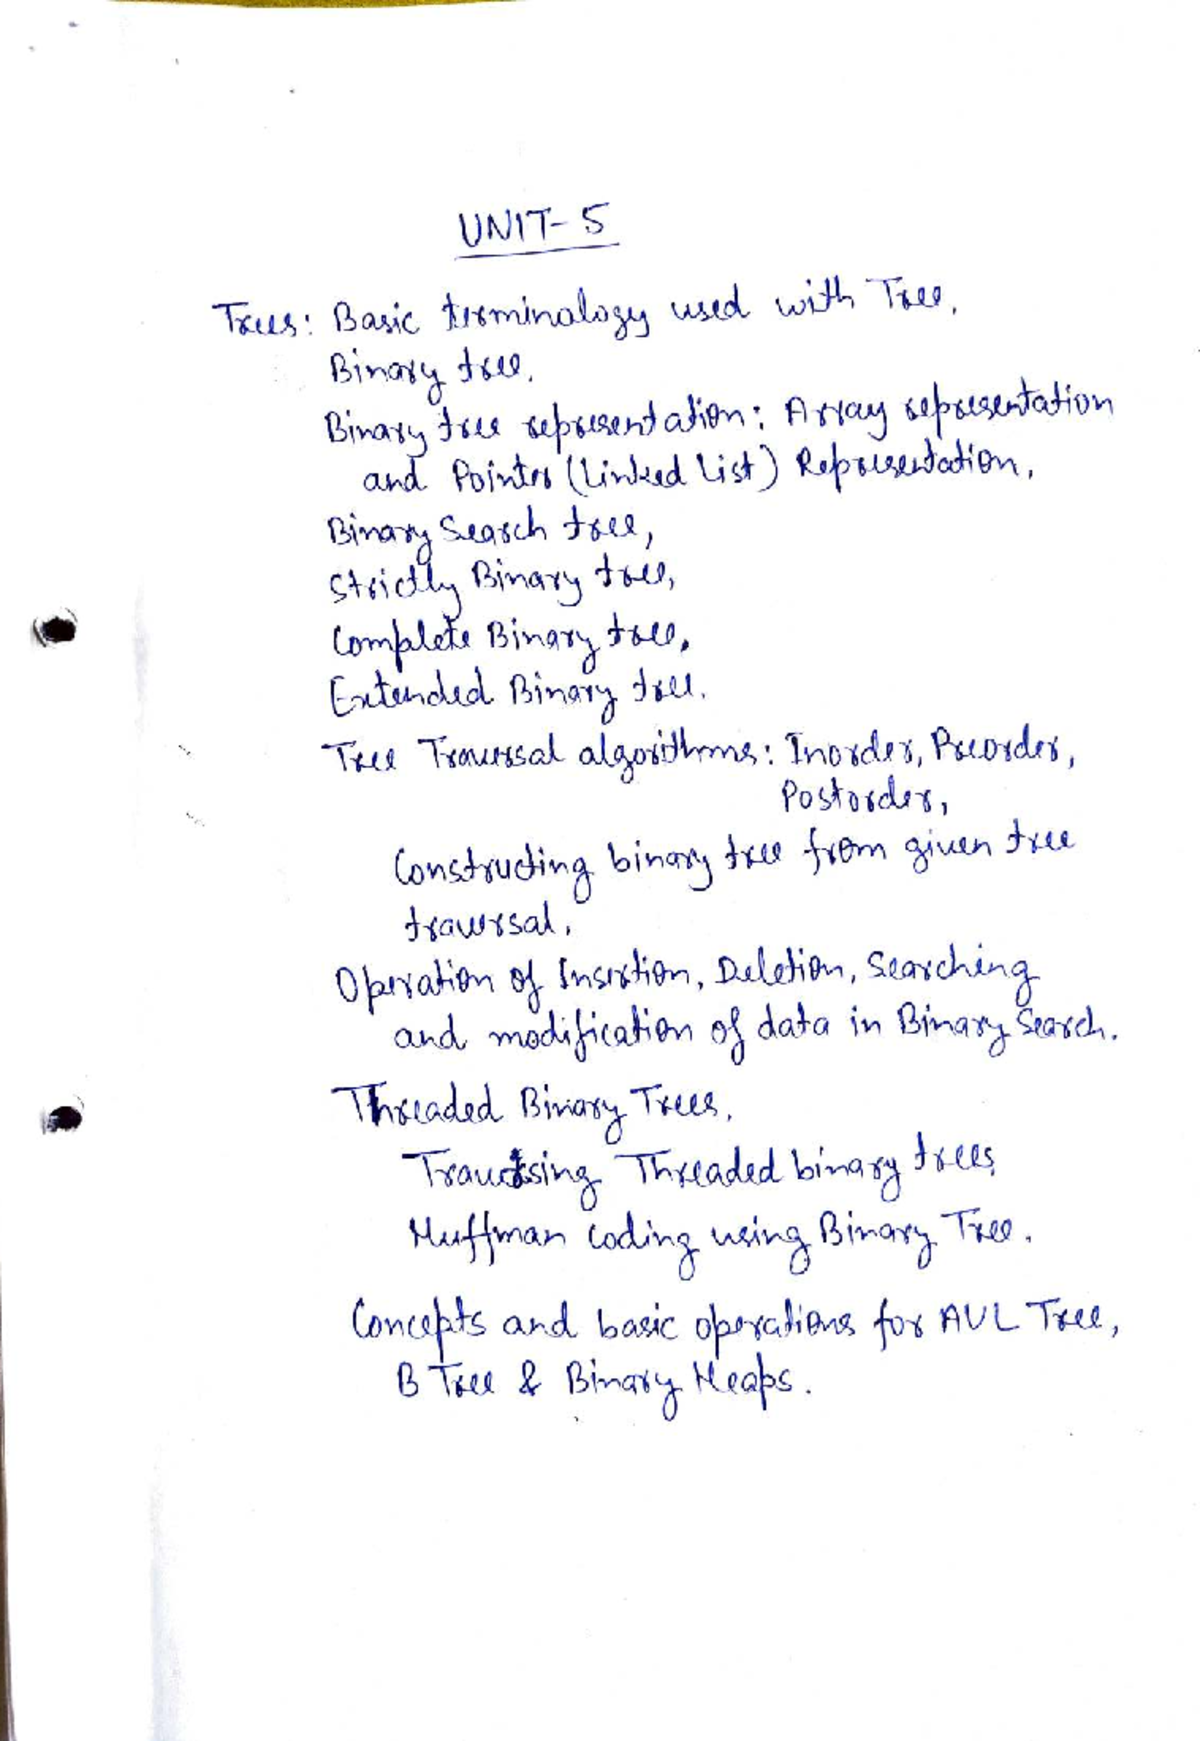 UNIT-5
Trees: Basic terminalogy used with Tree,
Binary tree,
Binary tree representation: Array representation
and Pointer (Linked List) Representation,
Binary Search tree,
Strictly Binary tree,
Complete Binary tree,
Extended Binary tree.
Tree Traversal algorithms: Inorder, Preorder,
Postorder,
Constructing binary tree from given tree
traversal,
Operation of Insertion, Deletion, Searching
and modification of data in Binary Search.
Threaded Binary Trees,
Traversing Threaded binary trees,
Huffman coding using Binary Tree.
Concepts and basic operations for AVL Tree,
B Tree & Binary Heaps.